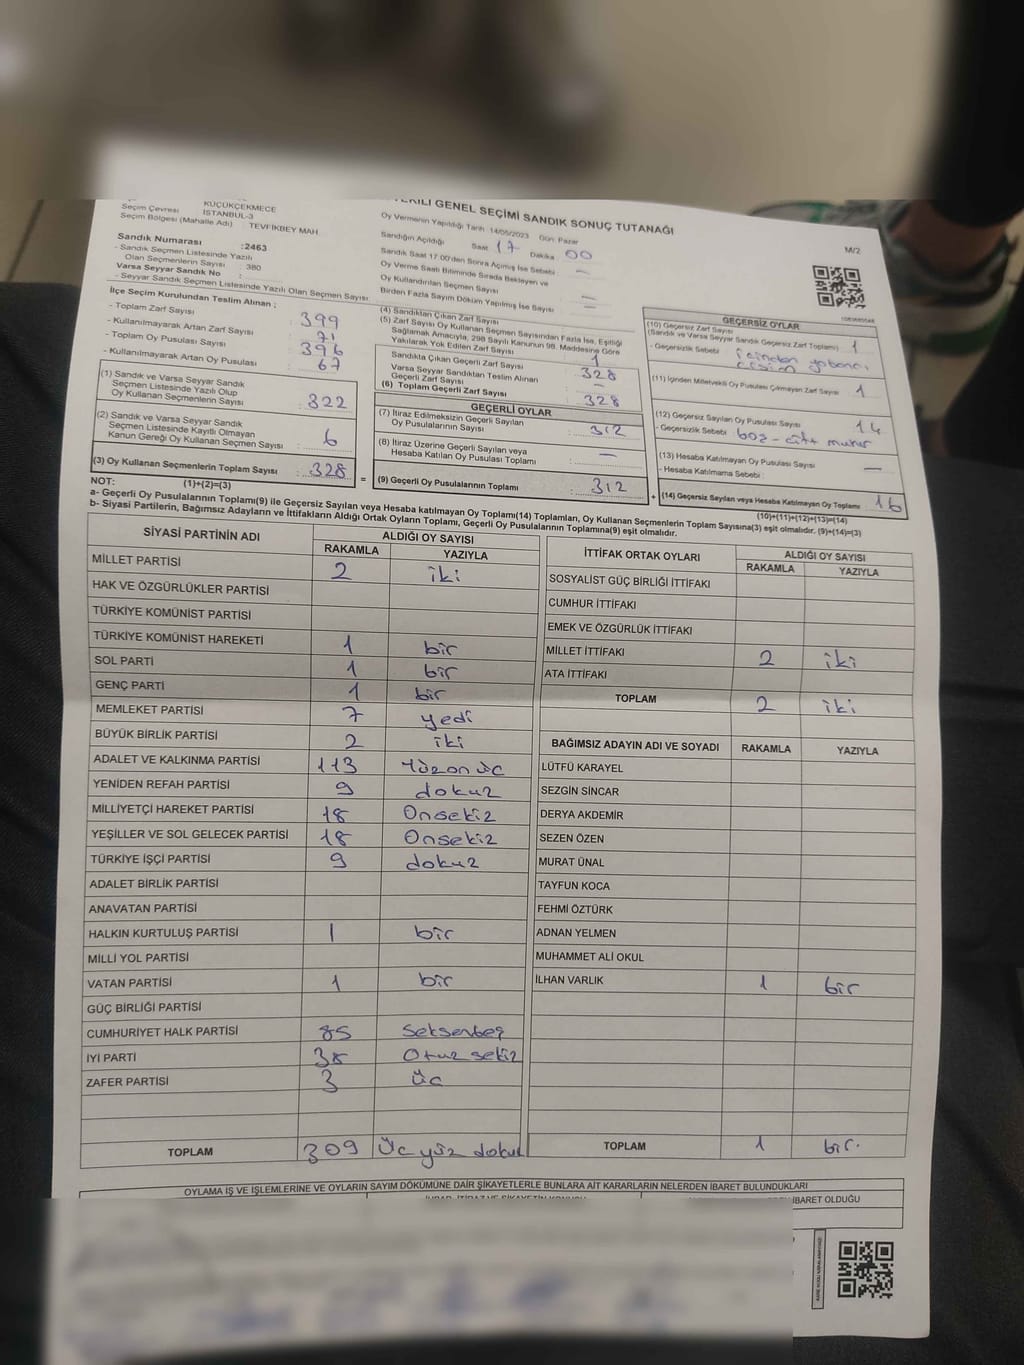 EKİLİ GENEL SEÇİMİ SANDIK SONUÇ TUTANAĞI
M/2
KÜÇÜKÇEKMECE
Seçim Çevresi İSTANBUL-3
Seçim Bölgesi (Mahalle Adı) : TEVFİKBEY MAH
Sandık Numarası :2463
- Sandık Seçmen Listesinde Yazılı
Olan Seçmenlerin Sayısı : 380
Varsa Seyyar Sandık No :
- Seyyar Sandık Seçmen Listesinde Yazılı Olan Seçmen Sayısı
Oy Vermenin Yapıldığı Tarih :14/05/2023 Gün: Pazar
Sandığın Açıldığı Saat 17 Dakika 00
Sandık Saat 17.00'den Sonra Açılmış İse Sebebi : —
Oy Verme Saati Bitiminde Sırada Bekleyen ve
Oy Kullandırılan Seçmen Sayısı : —
Birden Fazla Sayım Döküm Yapılmış İse Sayısı : —
İlçe Seçim Kurulundan Teslim Alınan ;
- Toplam Zarf Sayısı : 399
- Kullanılmayarak Artan Zarf Sayısı : 71
- Toplam Oy Pusulası Sayısı : 396
- Kullanılmayarak Artan Oy Pusulası : 67
(1) Sandık ve Varsa Seyyar Sandık
Seçmen Listesinde Yazılı Olup
Oy Kullanan Seçmenlerin Sayısı : 322
(2) Sandık ve Varsa Seyyar Sandık
Seçmen Listesinde Kayıtlı Olmayan
Kanun Gereği Oy Kullanan Seçmen Sayısı : 6
(3) Oy Kullanan Seçmenlerin Toplam Sayısı : 328
(4) Sandıktan Çıkan Zarf Sayısı
(5) Zarf Sayısı Oy Kullanan Seçmen Sayısından Fazla İse, Eşitliği
Sağlamak Amacıyla, 298 Sayılı Kanunun 98. Maddesine Göre
Yakılarak Yok Edilen Zarf Sayısı : 1
Sandıkta Çıkan Geçerli Zarf Sayısı : 328
Varsa Seyyar Sandıktan Teslim Alınan
Geçerli Zarf Sayısı : —
(6) Toplam Geçerli Zarf Sayısı : 328
GEÇERLİ OYLAR
(7) İtiraz Edilmeksizin Geçerli Sayılan
Oy Pusulalarının Sayısı : 312
(8) İtiraz Üzerine Geçerli Sayılan veya
Hesaba Katılan Oy Pusulası Toplamı : —
= (9) Geçerli Oy Pusulalarının Toplamı : 312
GEÇERSİZ OYLAR
(10) Geçersiz Zarf Sayısı
(Sandık ve Varsa Seyyar Sandık Geçersiz Zarf Toplamı) : 1
- Geçersizlik Sebebi : içinden yabancı
cisim
(11) İçinden Milletvekili Oy Pusulası Çıkmayan Zarf Sayısı : 1
(12) Geçersiz Sayılan Oy Pusulası Sayısı : 14
- Geçersizlik Sebebi : boş - çift mühür
(13) Hesaba Katılmayan Oy Pusulası Sayısı : —
- Hesaba Katılmama Sebebi :
+ (14) Geçersiz Sayılan veya Hesaba Katılmayan Oy Toplamı : 16
(10)+(11)+(12)+(13)=(14)
NOT: (1)+(2)=(3)
a- Geçerli Oy Pusulalarının Toplamı(9) ile Geçersiz Sayılan veya Hesaba katılmayan Oy Toplamı(14) Toplamları, Oy Kullanan Seçmenlerin Toplam Sayısına(3) eşit olmalıdır. (9)+(14)=(3)
b- Siyasi Partilerin, Bağımsız Adayların ve İttifakların Aldığı Ortak Oyların Toplamı, Geçerli Oy Pusulalarının Toplamına(9) eşit olmalıdır.
SİYASİ PARTİNİN ADI ALDIĞI OY SAYISI
RAKAMLA YAZIYLA
MİLLET PARTİSİ 2 iki
HAK VE ÖZGÜRLÜKLER PARTİSİ
TÜRKİYE KOMÜNİST PARTİSİ
TÜRKİYE KOMÜNİST HAREKETİ 1 bir
SOL PARTİ 1 bir
GENÇ PARTİ 1 bir
MEMLEKET PARTİSİ 7 yedi
BÜYÜK BİRLİK PARTİSİ 2 iki
ADALET VE KALKINMA PARTİSİ 113 Yüzonüç
YENİDEN REFAH PARTİSİ 9 dokuz
MİLLİYETÇİ HAREKET PARTİSİ 18 Onsekiz
YEŞİLLER VE SOL GELECEK PARTİSİ 18 Onsekiz
TÜRKİYE İŞÇİ PARTİSİ 9 dokuz
ADALET BİRLİK PARTİSİ
ANAVATAN PARTİSİ
HALKIN KURTULUŞ PARTİSİ 1 bir
MİLLİ YOL PARTİSİ
VATAN PARTİSİ 1 bir
GÜÇ BİRLİĞİ PARTİSİ
CUMHURİYET HALK PARTİSİ 85 Seksenbeş
İYİ PARTİ 38 Otuz sekiz
ZAFER PARTİSİ 3 üç
TOPLAM 309 Üç yüz dokuz
İTTİFAK ORTAK OYLARI ALDIĞI OY SAYISI
RAKAMLA YAZIYLA
SOSYALİST GÜÇ BİRLİĞİ İTTİFAKI
CUMHUR İTTİFAKI
EMEK VE ÖZGÜRLÜK İTTİFAKI
MİLLET İTTİFAKI 2 iki
ATA İTTİFAKI
TOPLAM 2 iki
BAĞIMSIZ ADAYIN ADI VE SOYADI RAKAMLA YAZIYLA
LÜTFÜ KARAYEL
SEZGİN SİNCAR
DERYA AKDEMİR
SEZEN ÖZEN
MURAT ÜNAL
TAYFUN KOCA
FEHMİ ÖZTÜRK
ADNAN YELMEN
MUHAMMET ALİ OKUL
İLHAN VARLIK 1 bir
TOPLAM 1 bir.
OYLAMA İŞ VE İŞLEMLERİNE VE OYLARIN SAYIM DÖKÜMÜNE DAİR ŞİKAYETLERLE BUNLARA AİT KARARLARIN NELERDEN İBARET BULUNDUKLARI
İBARET OLDUĞU